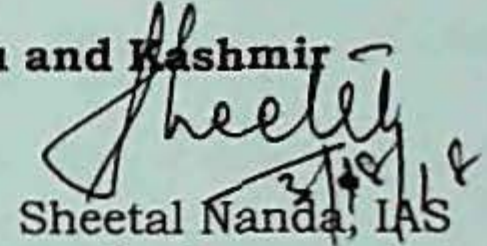 and Kashmir
Sheetal
Sheetal Nanda, IAS